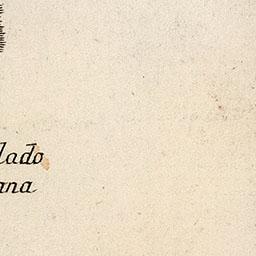 lado
ana